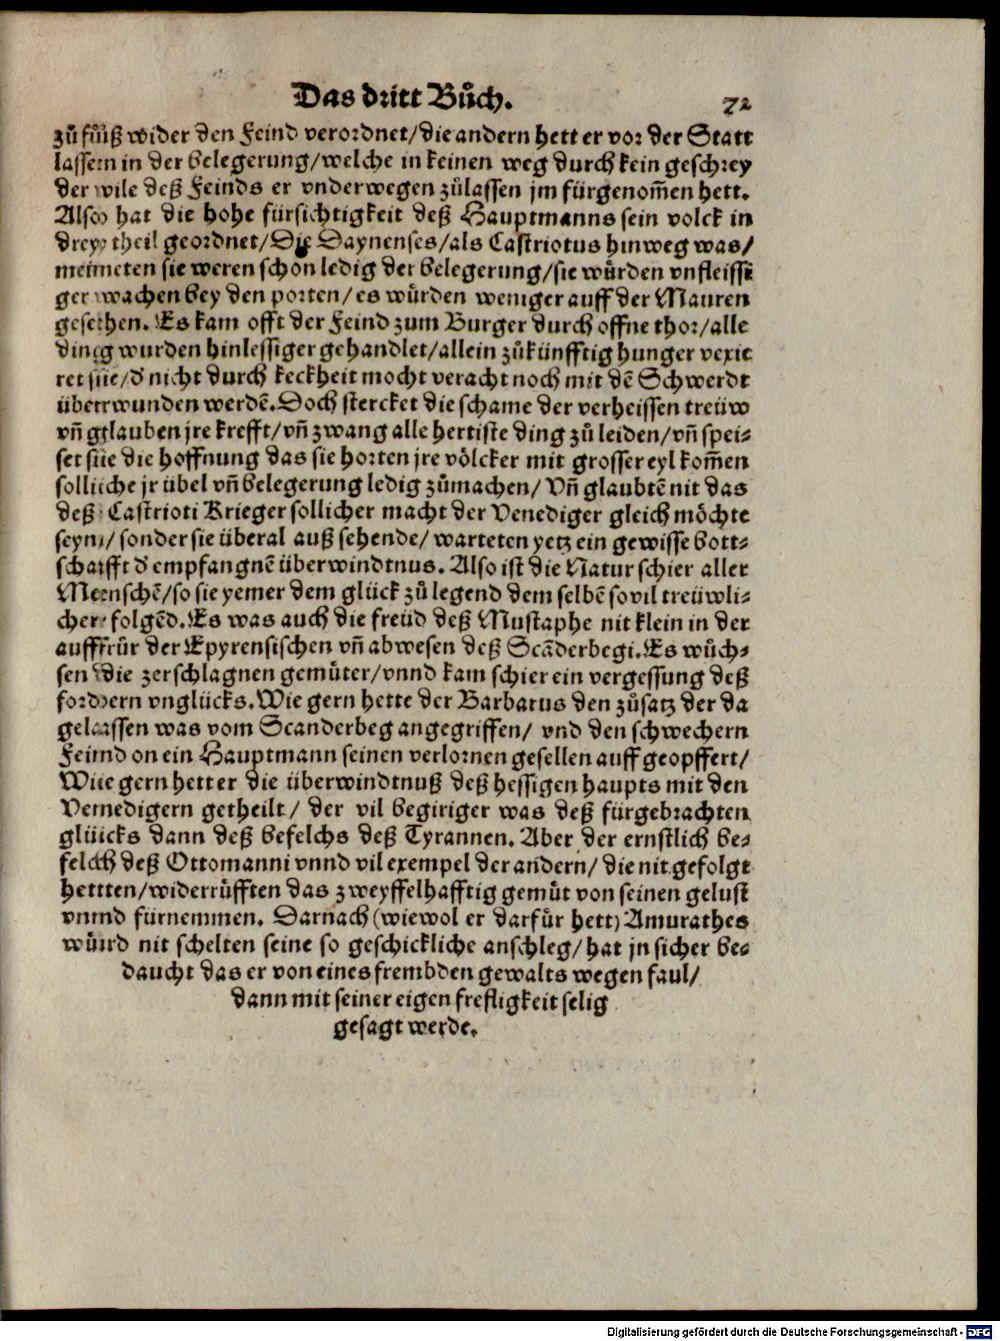 Das dritt Buͦch. 72
zuͦ fuͦß wider den Feind verordnet/die andern hett er vor der Statt
lassen in der belegerung/welche in keinen weg durch kein geschrey
der wile deß Feinds er vnderwegen zuͦlassen jm fürgenom̃en hett.
Also hat die hohe fürsichtigkeit deß Hauptmanns sein volck in
drey theil geordnet/Die Daynenses/als Castriotus hinweg was/
meineten sie weren schon ledig der belegerung/sie wuͤrden vnfleissi
ger wachen bey den porten/es wuͤrden weniger auff der Mauren
gesehen. Es kam offt der Feind zum Burger durch offne thor/alle
ding wurden hinlessiger gehandlet/allein zuͦkünfftig hunger vexie
ret sie/d' nicht durch keckheit mocht veracht noch mit dē Schwerdt
überwunden werdē. Doch stercket die schame der verheissen treüw
vn̄ glauben jre krefft/vn̄ zwang alle hertiste ding zuͦ leiden/vn̄ spei⸗
set sie die hoffnung das sie horten jre voͤlcker mit grosser eyl kom̃en
solliche jr übel vn̄ belegerung ledig zuͦmachen/ Vn̄ glaubtē nit das
deß Castrioti Krieger sollicher macht der Venediger gleich moͤchte
seyn/ sonder sie überal auß sehende/ warteten yetz ein gewisse bott⸗
schafft d' empfangnē überwindtnus. Also ist die Natur schier aller
Menschē/so sie yemer dem glück zuͦ legend dem selbē so vil treüwli⸗
cher folgēd. Es was auch die freüd deß Mustaphe nit klein in der
auffruͦr der Epyrensischen vn̄ abwesen deß Scāderbegi. Es wuͦch⸗
sen die zerschlagnen gemuͤter/vnnd kam schier ein vergessung deß
fordern vnglücks. Wie gern hette der Barbarus den zuͦsatz der da
gelassen was vom Scanderbeg angegriffen/ vnd den schwechern
Feind on ein Hauptmann seinen verlornen gesellen auff geopffert/
Wie gern hett er die überwindtnuß deß hessigen haupts mit den
Venedigern getheilt/ der vil begiriger was deß fürgebrachten
glücks dann deß befelchs deß Tyrannen. Aber der ernstlich be⸗
felch deß Ottomanni vnnd vil exempel der andern/ die nit gefolgt
hetten/widerruͤfften das zweyffelhafftig gemuͤt von seinen gelust
vnnd fürnemmen. Darnach (wiewol er darfür hett) Amurathes
wuͤrd nit schelten seine so geschickliche anschleg/hat jn sicher be⸗
daucht das er von eines frembden gewalts wegen faul/
dann mit seiner eigen frefligkeit selig
gesagt werde.
Digitalisierung gefördert durch die Deutsche Forschungsgemeinschaft - DFG